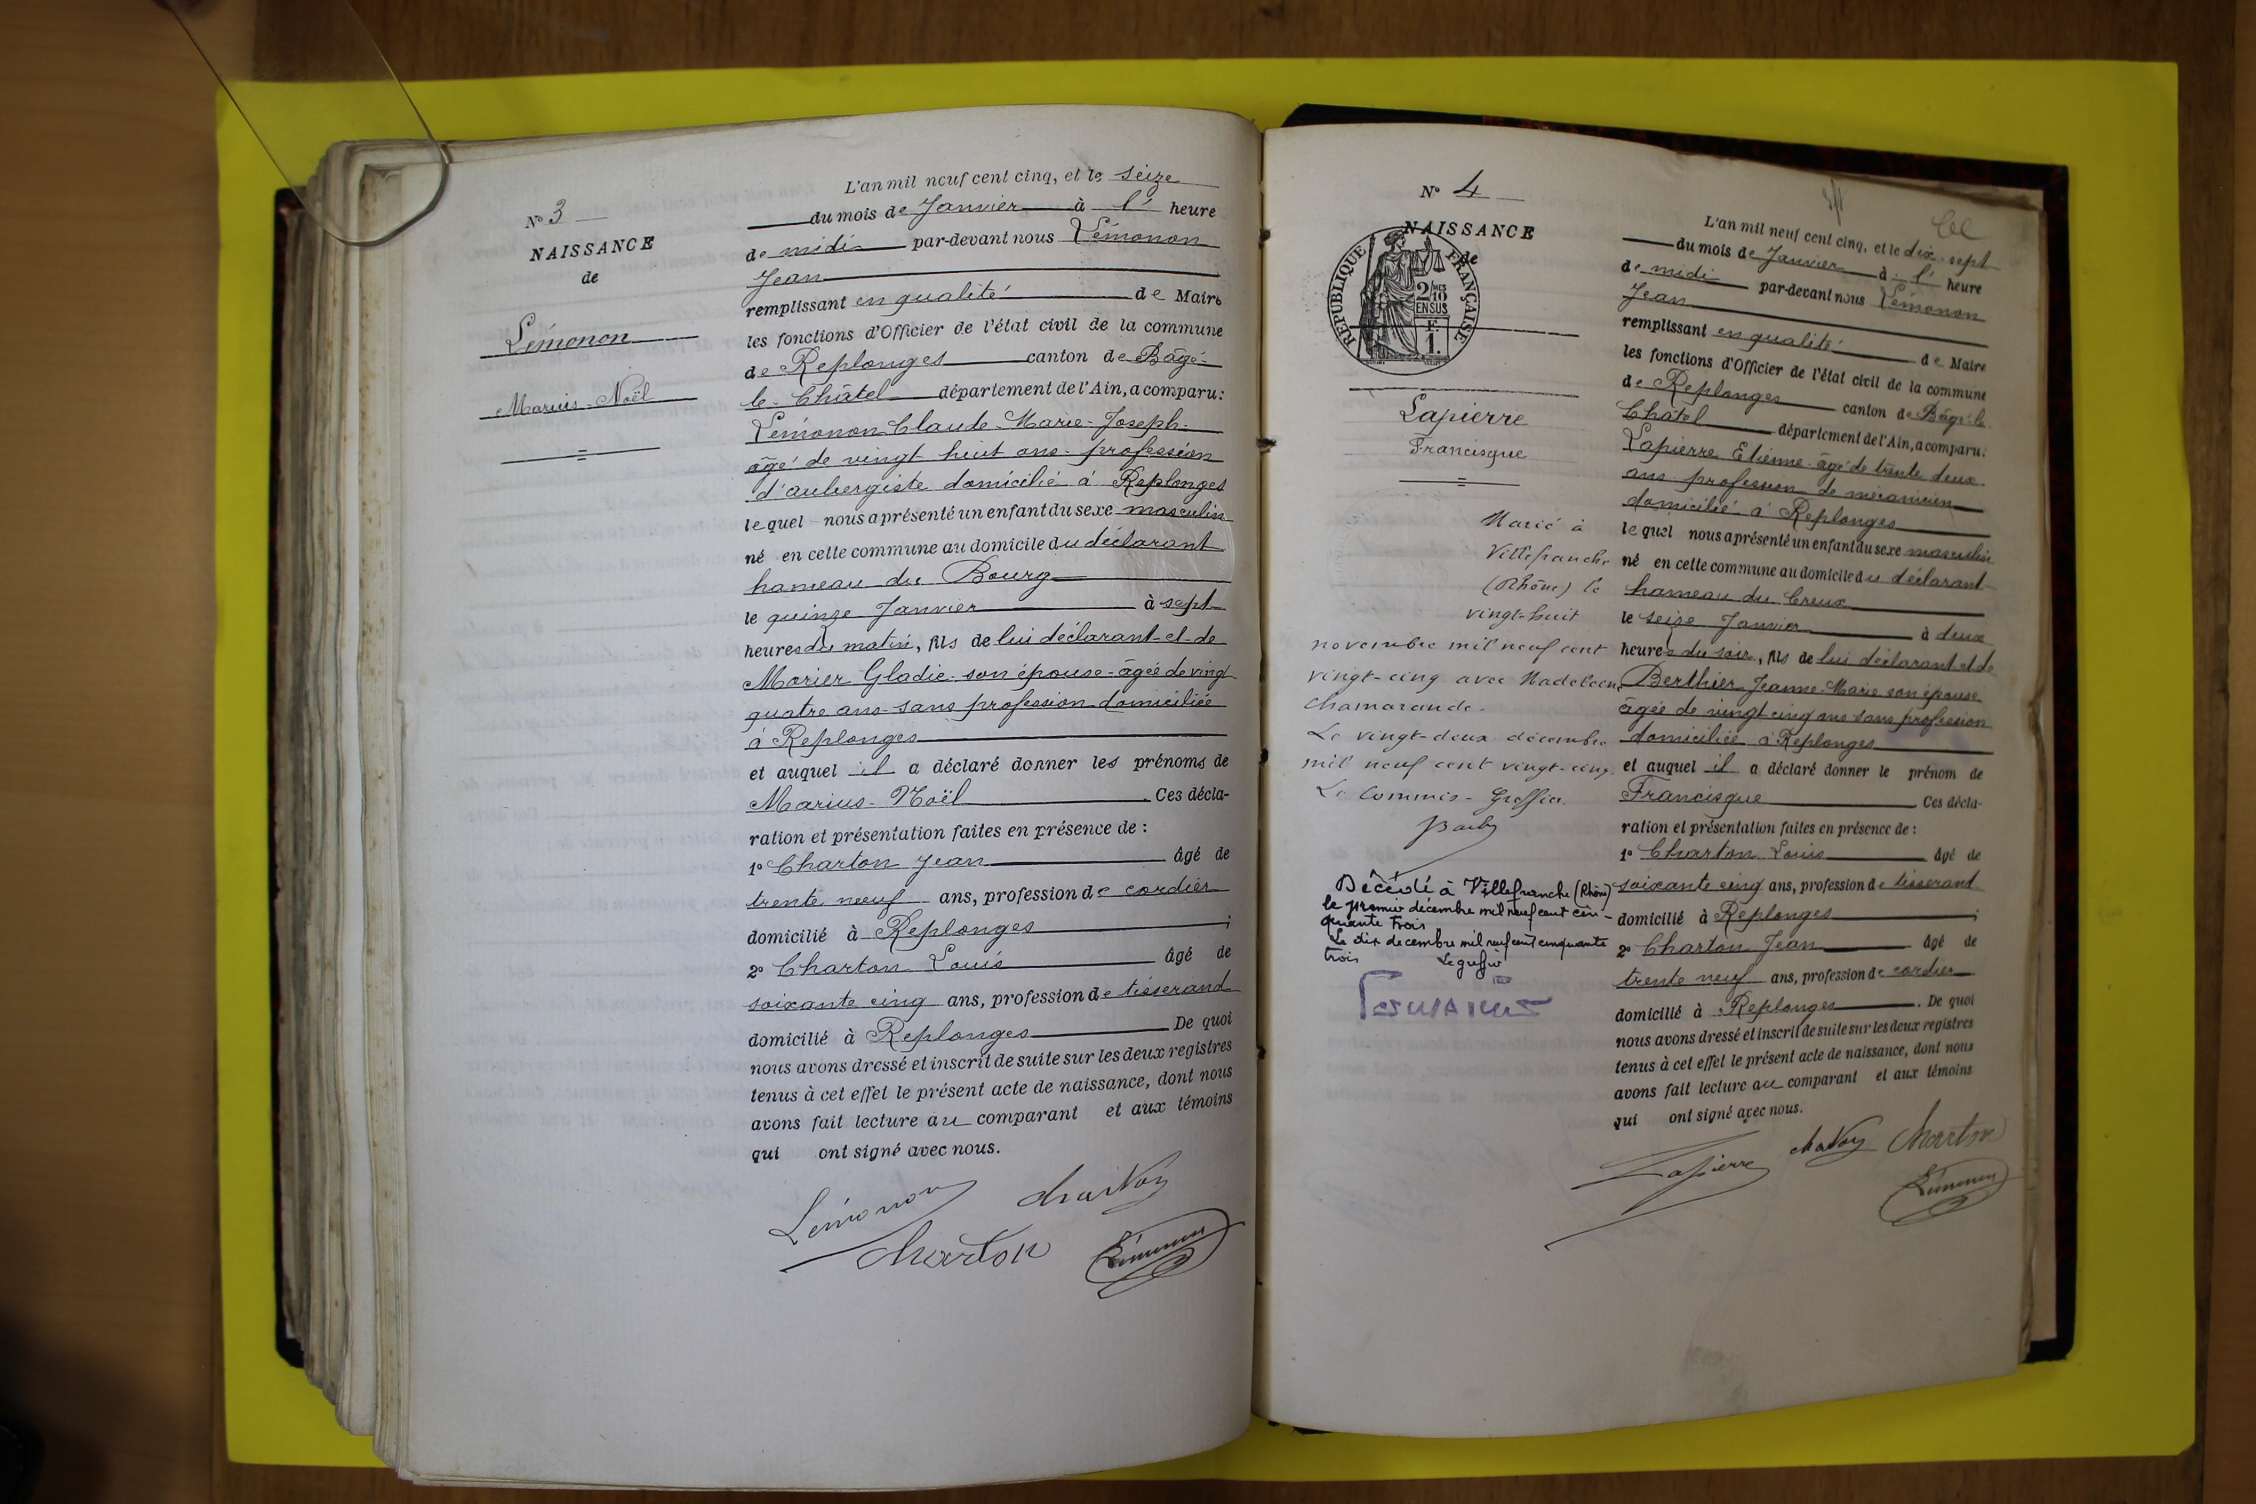 N° 3
NAISSANCE
de
Lémonon
Marius-Noël
L'an mil neuf cent cinq, et le seize
du mois de Janvier à 1' heure
de midi par-devant nous Lémonon
Jean
remplissant en qualité de Maire
les fonctions d'Officier de l'état civil de la commune
de Replonges canton de Bâgé-
le-Châtel département de l'Ain, a comparu:
Lémonon Claude-Marie-Joseph-
âgé de vingt huit ans-profession
d'aubergiste domicilié à Replonges
lequel nous a présenté un enfant du sexe masculin
né en cette commune au domicile du déclarant
hameau du Bourg
le quinze Janvier à sept
heures du matin, fils de lui déclarant et de
Morier Gladie-son épouse-âgée de vingt
quatre ans-sans profession domiciliée
à Replonges
et auquel il a déclaré donner les prénoms de
Marius-Noël. Ces décla-
ration et présentation faites en présence de :
1° Charton Jean âgé de
trente neuf ans, profession de cordier
domicilié à Replonges ;
2° Charton Louis âgé de
soixante cinq ans, profession de tisserand
domicilié à Replonges De quoi
nous avons dressé et inscrit de suite sur les deux registres
tenus à cet effet le présent acte de naissance, dont nous
avons fait lecture au comparant et aux témoins
qui ont signé avec nous.
Lémonon Charton
Charton Lémonon
N° 4
NAISSANCE
de
RÉPUBLIQUE FRANÇAISE
2/10
MES
EN SUS
F.
1.
Lapierre
Francisque
Marié à
Villefranche
(Rhône) le
vingt-huit
novembre mil neuf cent
vingt-cinq avec Madeleine
Chamarande.
Le vingt-deux décembre
mil neuf cent vingt-cinq
Le Commis-Greffier
Décédé à Villefranche (Rhône)
le premier décembre mil neuf cent cin-
quante trois
Le dix decembre mil neuf cent cinquante
trois Le greffier
L'an mil neuf cent cinq, et le dix-sept
du mois de Janvier à 1' heure
de midi par-devant nous Lémonon
Jean
remplissant en qualité de Maire
les fonctions d'Officier de l'état civil de la commune
de Replonges canton de Bâgé-le
Châtel département de l'Ain, a comparu:
Lapierre Etienne-âgé de trente deux
ans profession de mécanicien
domicilié à Replonges
lequel nous a présenté un enfant du sexe masculin
né en cette commune au domicile du déclarant
hameau du Creux
le seize Janvier à deux
heures du soir, fils de lui déclarant et de
Berthier Jeanne-Marie son épouse
âgée de vingt cinq ans sans profession
domiciliée à Replonges
et auquel il a déclaré donner le prénom de
Francisque. Ces décla-
ration et présentation faites en présence de :
1° Charton Louis âgé de
soixante cinq ans, profession de tisserand
domicilié à Replonges ;
2° Charton Jean âgé de
trente neuf ans, profession de cordier
domicilié à Replonges. De quoi
nous avons dressé et inscrit de suite sur les deux registres
tenus à cet effet le présent acte de naissance, dont nous
avons fait lecture au comparant et aux témoins
qui ont signé avec nous.
Lapierre Charton Charton
Lémonon